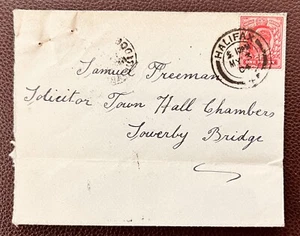 HALIFAX
Samuel Freeman
Solicitor Town Hall Chambers
Sowerby Bridge